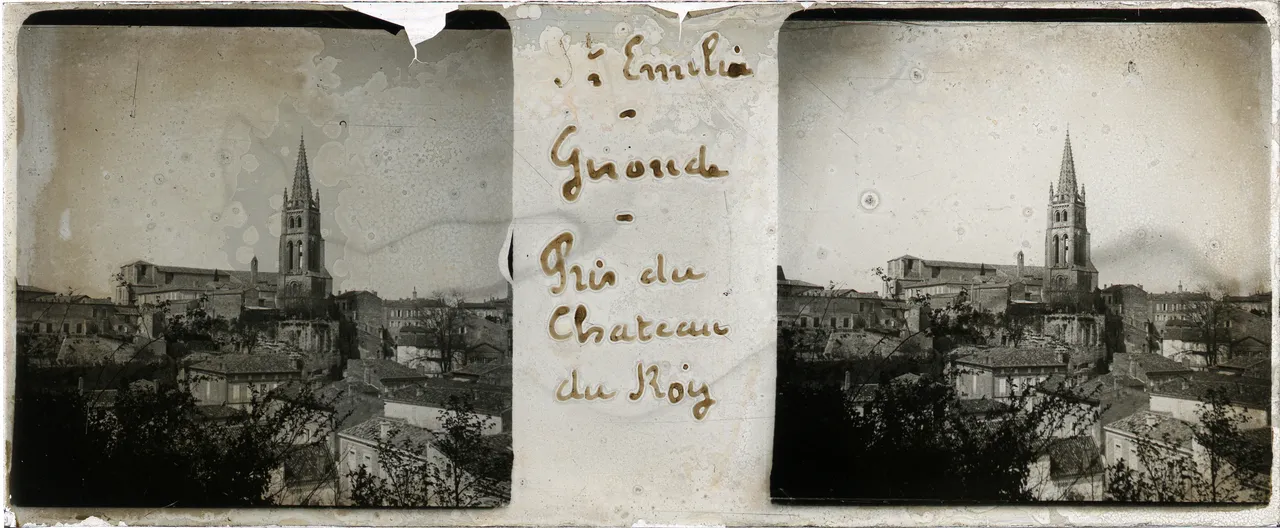 St Emilion
-
Gironde
-
Pris du
Chateau
du Roiy